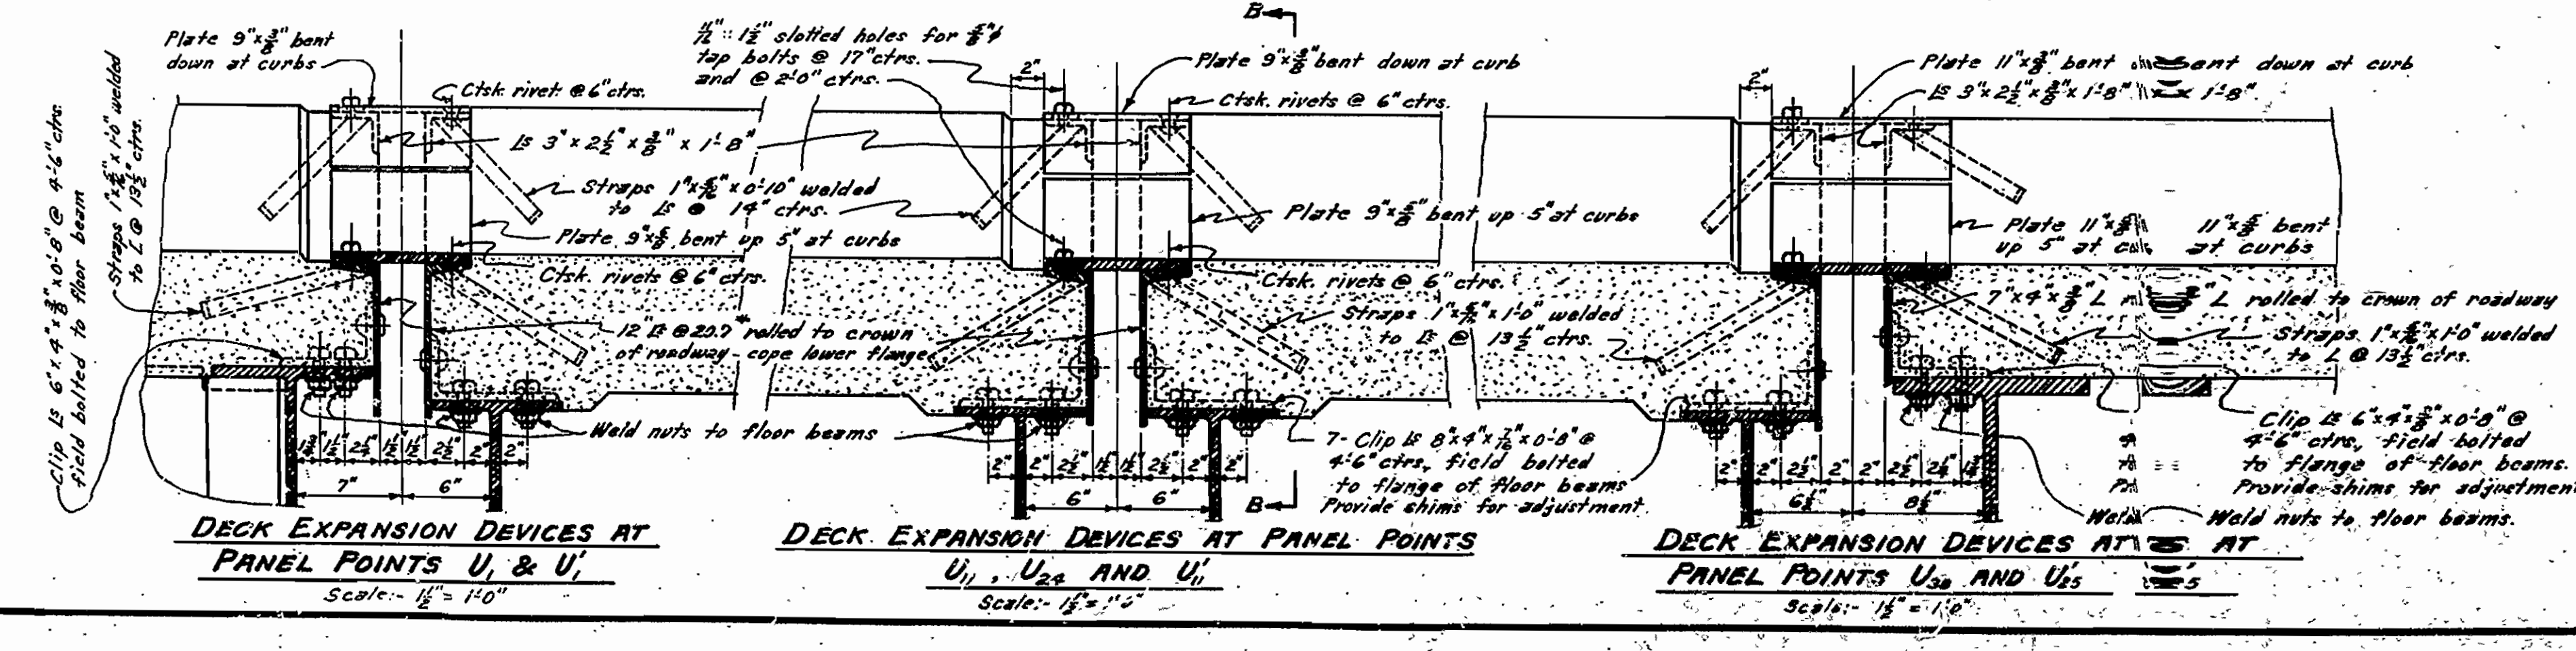 Plate 9"x3/8" bent
down at curbs
Ctsk. rivets @ 6" ctrs.
Clip Ls 6"x4"x3/8"x0'-8" @ 4'-6" ctrs.
field bolted to floor beam
Straps 1"x5/16"x1'-0" welded
to L @ 13 1/2" ctrs.
Ls 3"x2 1/2"x3/8"x1'-8"
Straps 1"x5/16"x0'-10" welded
to Ls @ 14" ctrs.
Plate 9"x5/8" bent up 5" at curbs
Ctsk. rivets @ 6" ctrs.
12" Ls @ 20.7# rolled to crown
of roadway - cope lower flange
Weld nuts to floor beams
1 3/4" 1 1/2" 2 1/2" 1 1/2" 1 1/2" 2 1/2" 2" 2"
7" 6"
DECK EXPANSION DEVICES AT
PANEL POINTS U1 & U1'
Scale:- 1 1/2" = 1'-0"
11/16" :: 1 1/2" slotted holes for 5/8"φ
tap bolts @ 17" ctrs.
and @ 2'-0" ctrs.
B
2"
Plate 9"x3/8" bent down at curb
Ctsk. rivets @ 6" ctrs.
Plate 9"x5/8" bent up 5" at curbs
Ctsk. rivets @ 6" ctrs.
Straps 1"x5/16"x1'-0" welded
to Ls @ 13 1/2" ctrs.
7- Clip Ls 8"x4"x7/16"x0'-8" @
4'-6" ctrs, field bolted
to flange of floor beams
Provide shims for adjustment
2" 2" 2 1/2" 1 1/2" 1 1/2" 2 1/2" 2" 2"
6" 6"
B
DECK EXPANSION DEVICES AT PANEL POINTS
U11, U24 AND U11'
Scale:- 1 1/2" = 1'-0"
2"
Plate 11"x3/8" bent bent down at curb
Ls 3"x2 1/2"x3/8"x1'-8" x 1'-8"
Plate 11"x5/8" 11"x5/8" bent
up 5" at at curbs
7"x4"x3/8" L L rolled to crown of roadway
Straps 1"x5/16"x1'-0" welded
to L @ 13 1/2" ctrs.
Clip Ls 6"x4"x3/8"x0'-8" @
4'-6" ctrs, field bolted
to flange of floor beams.
Provide shims for adjustment
Weld Weld nuts to floor beams.
2" 2" 2 1/2" 2" 2" 2 1/2" 2 1/4" 1 3/4"
6 1/2" 8 1/2"
DECK EXPANSION DEVICES AT AT
PANEL POINTS U38 AND U25'
Scale:- 1 1/2" = 1'-0"